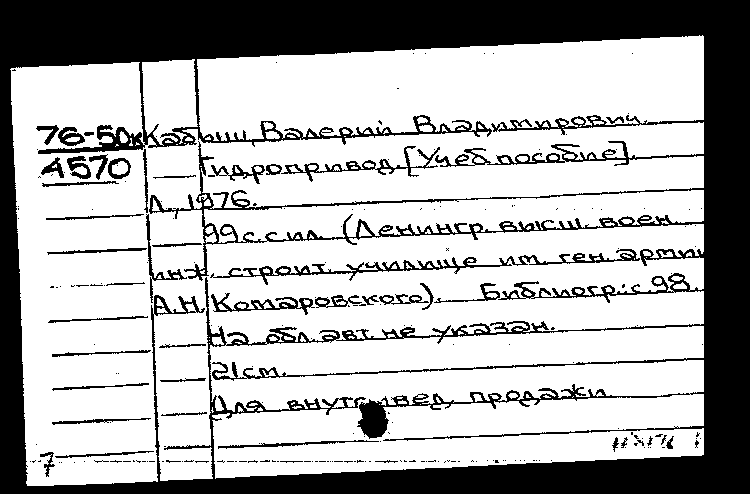 76-50к Кабыш, Валерий Владимирович.
4570 Гидропривод. [Учеб пособие].
Л., 1976.
99 с. с ил. (Ленингр. высш. воен.
инж. строит. училище им. ген. армии
А.Н. Комаровского). Библиогр.: с. 98.
На обл. авт. не указан.
21 см.
Для внутривед. продажи
7